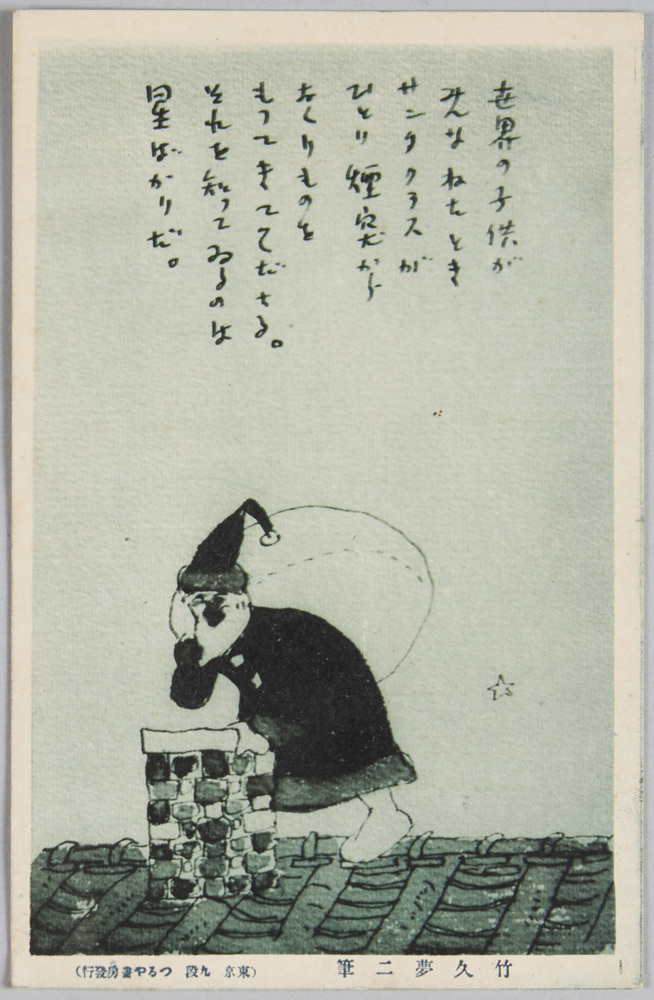 世界の子供が
みんなねたとき
サンタクラスが
ひとり煙突から
おくりものを
もつてきてくださる。
それを知つてゐるのは
星ばかりだ。
竹久夢二筆
(東京 九段 つるや書房發行)